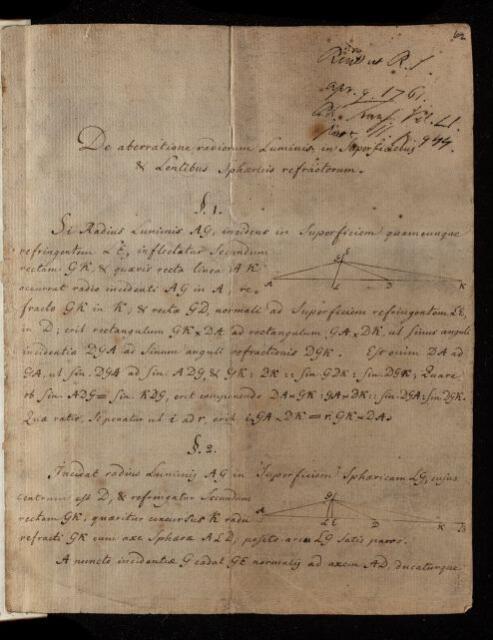 62
Read at R. S.
apr. 9. 1761.
Vol. LI.
944.
De aberratione radiorum Luminis, in Superficiebus
& Lentibus Sphæricis refractorum.
§. 1.
Si Radius Luminis AG, incidens in Superficiem quamcunque
refringentem LE, inflectatur Secundum
rectam GK, & quævis recta linea AK
occurrat radio incidenti AG in A, re-
fracto GK in K, & rectæ GD, normali ad Superficiem refringentem LE,
in D; erit rectangulum GK × DA ad rectangulum GA × DK, ut sinus anguli
incidentiæ DGA ad Sinum anguli refractionis DGK. Est enim DA ad
GA, ut sin. DGA ad sin. ADG, & GK : DK :: sin. GDK : sin. DGK; Quare
ob sin. ADG = sin. KDG, erit componendo DA × GK : GA × DK :: sin. DGA : sin. DGK.
Quæ ratio, si ponatur ut i ad r, erit i, GA × DK = r, GK × DA.
G
A L D K
§. 2.
Incidat radius Luminis AG in Superficiem Sphæricam LG, cujus
centrum est D, & refringatur Secundum
rectam GK; quæritur concursus K radii
refracti GK cum axe Sphæræ ALD, posito arcu LG satis parvo.
G
A L E D K B
A puncto incidentiæ G cadat GE normalis ad axem AD, ducaturque